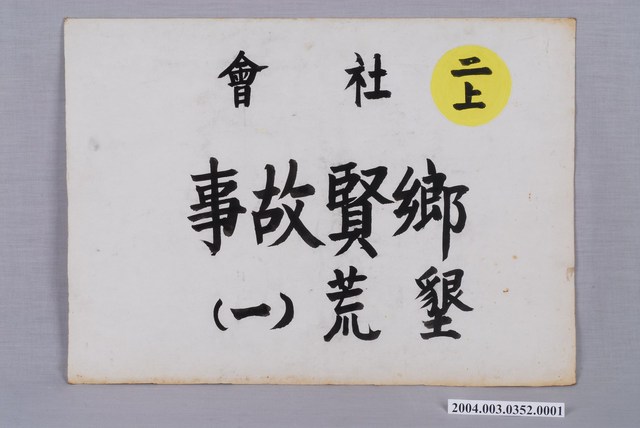 二上
社會
鄉賢故事
墾荒(一)
2004.003.0352.0001